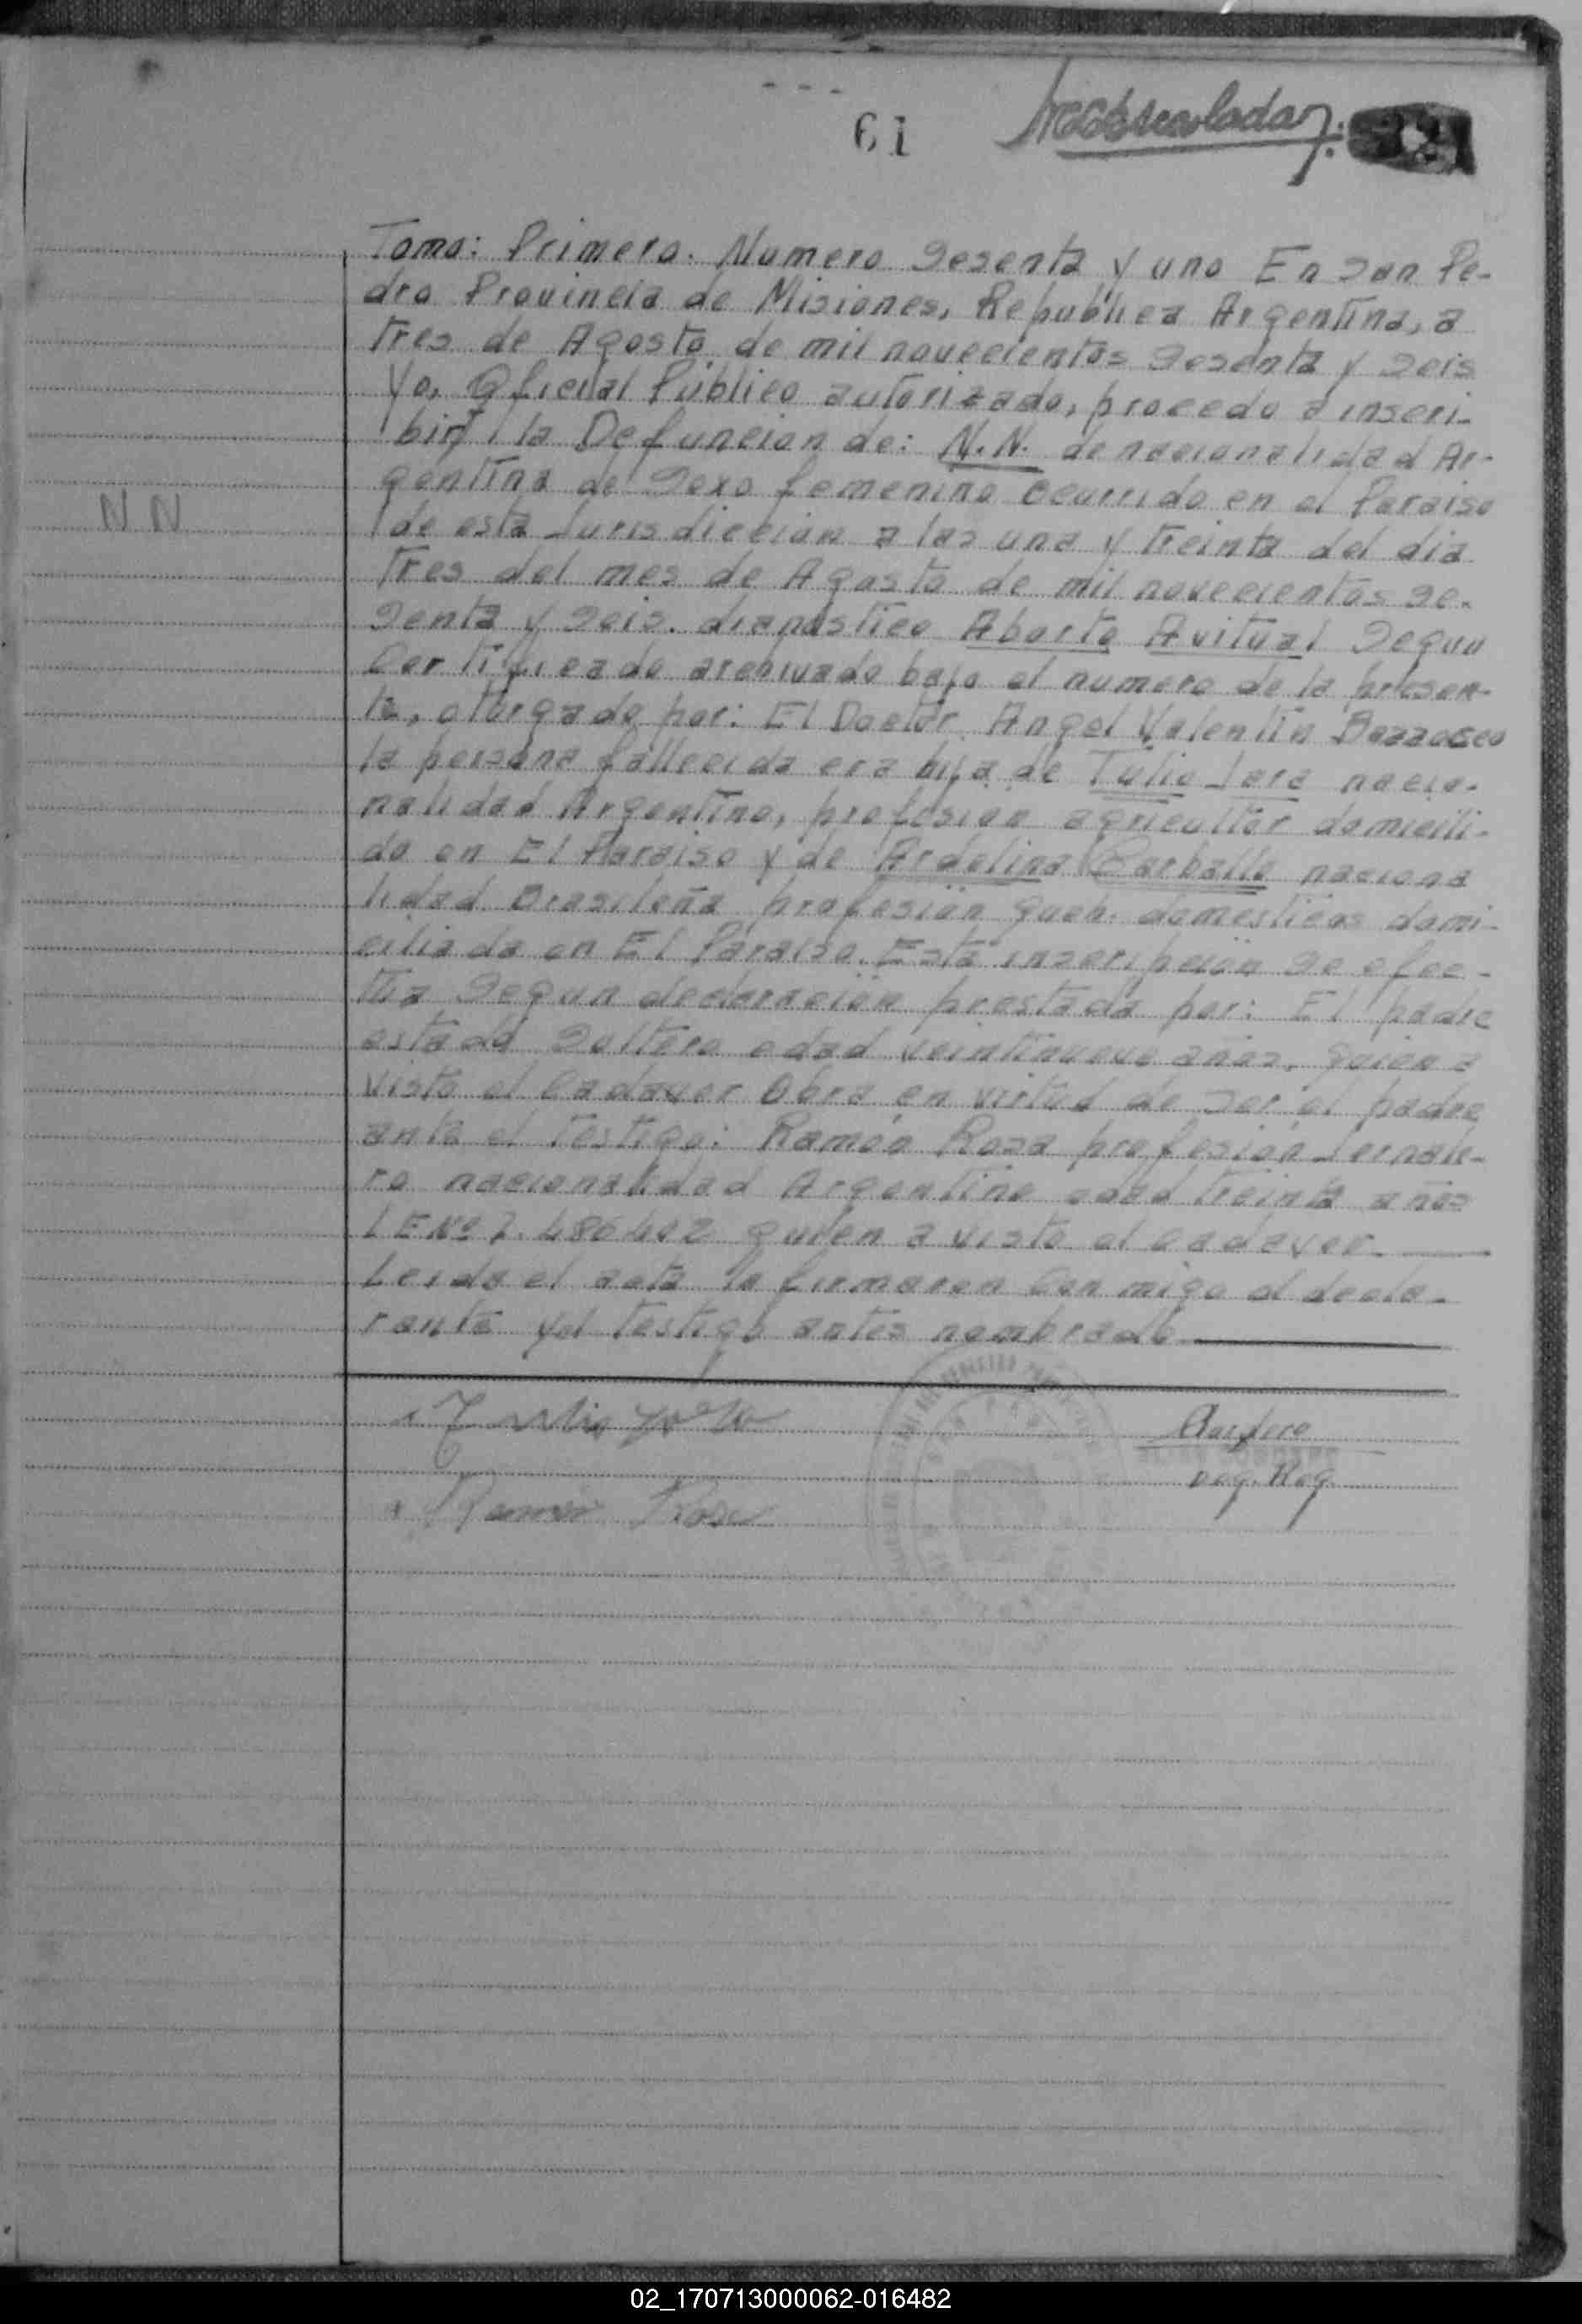 61
Tomo: Primero. Numero Sesenta y uno En San Pe-
dro Provincia de Misiones, República Argentina, a
tres de Agosto de mil novecientos Sesenta y Seis
Yo, Oficial Público autorizado, procedo a inscri-
bir la Defuncion de: N.N. de nacionalidad Ar-
gentina de Sexo femenino ocurrido en el Paraiso
N N
de esta Jurisdiccion a las una y treinta del dia
tres del mes de Agosto de mil novecientos se-
senta y Seis. diagnostico Aborto Avitual Segun
Certificado archivado bajo el numero de la presen-
te, otorgado por: El Doctor Angel Valentin
la persona fallecida era hija de Tulio Jara nacio-
nalidad Argentino, profesion agricultor domicili-
do en El Paraiso y de Ardelina Carballo naciona
lidad Brasileña profesión queh. domesticos domi-
ciliada en El Paraiso. Esta inscripción se efec-
tua Segun declaración prestada por: El padre
estado Soltero edad veintinueve años, quien a
visto el Cadaver Obra en virtud de ser el padre
ante el testigo: Ramón Rosa profesión Jornale-
ro nacionalidad Argentino edad treinta años
LE Nº 7.486402 quien a visto el cadaver
Leida el acta la firmaron Con migo el decla-
rante y el testigo antes nombrado
Ramon Rosa
Deg. Reg.
02_170713000062-016482